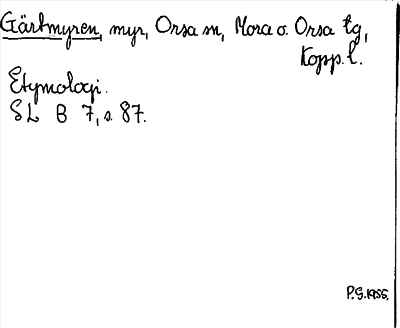 Gärtmyren, myr, Orsa sn, Mora o. Orsa tg,
Kopp. l.
Etymologi.
SL B 7, s. 87.
P.G. 1955.